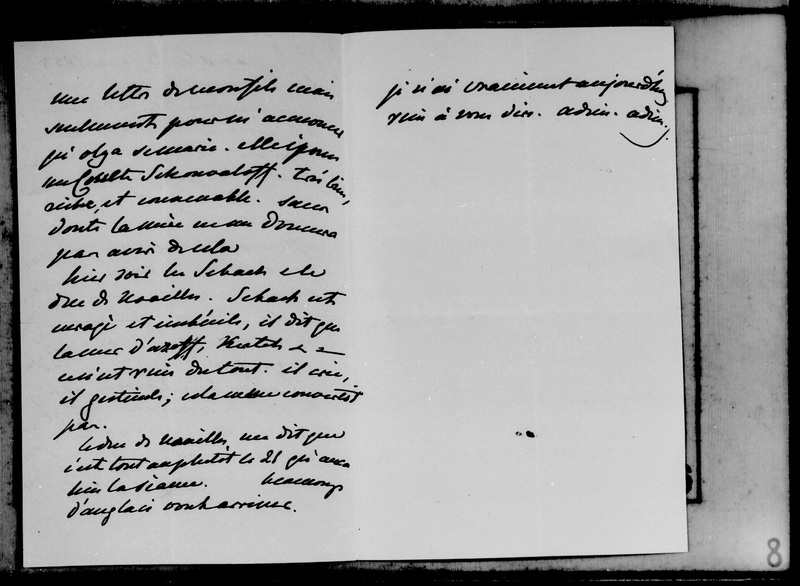 une lettre de mon fils mais
seulement pour m'annoncer
qu'Olga se marie. Elle épouse
un Comte Schouvaloff. très bien,
riche, et convenable. sans
doute la mère m'en donnera
par avoir de cela
hier soir les Schach et le
duc de Noailles. Schach est
enragé et imbécile, il dit que
la mer d'azoff, Kertch &
n'est rien du tout. il crie,
il gesticule; cela même convertit
pas.
le duc de Noailles me dit que
c'est tout au plutôt le 21 qu'aura
lieu la séance. beaucoup
d'anglais vont arriver.
je n'ai vraiment aujourd'hui
rien à vous dire. adieu. adieu.
8